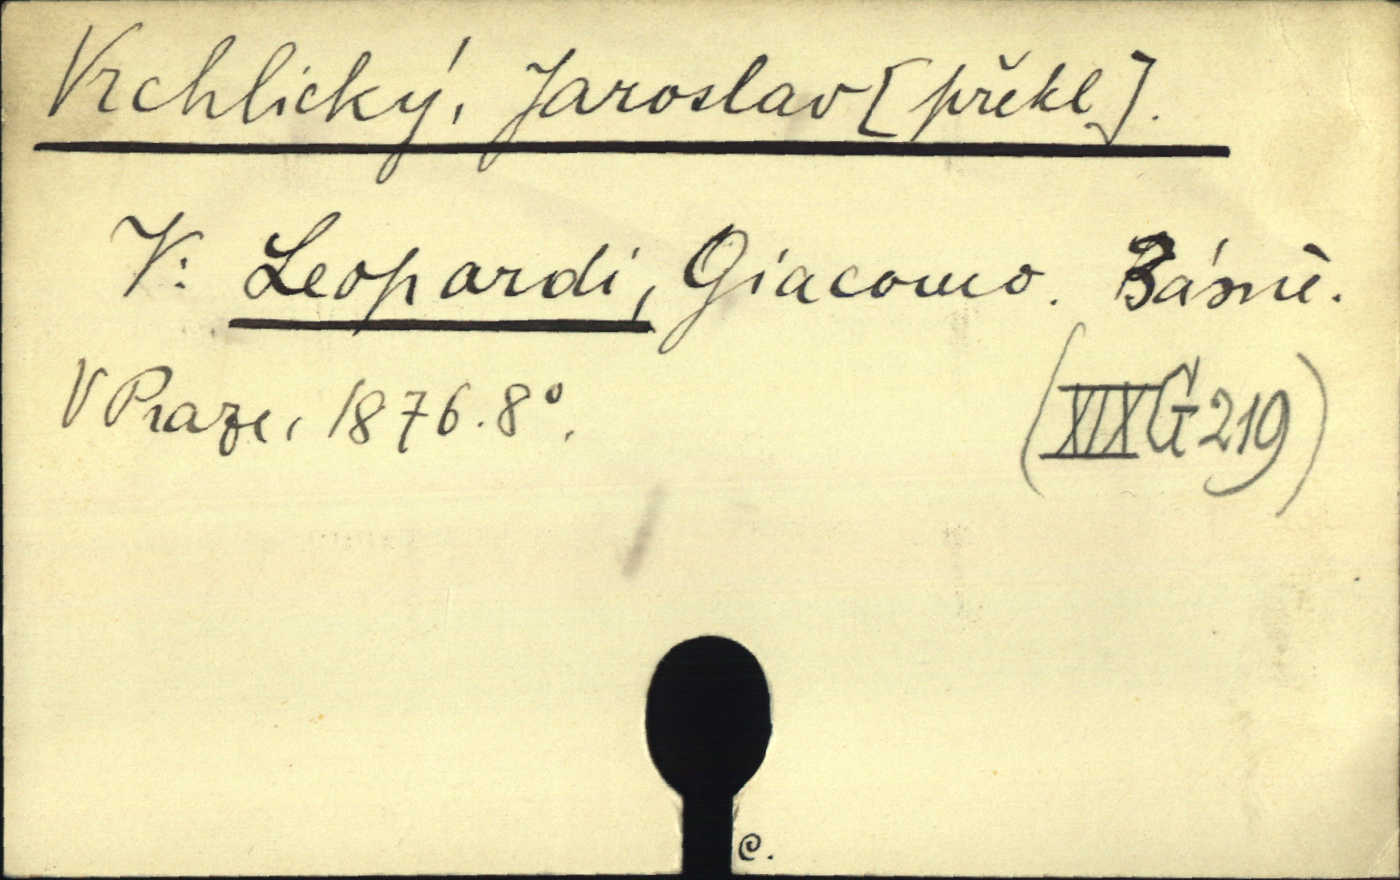 Vrchlický, Jaroslav [překl].
V: Leopardi, Giacomo. Básně.
V Praze, 1876. 8°.
(XIX G 219)
C.